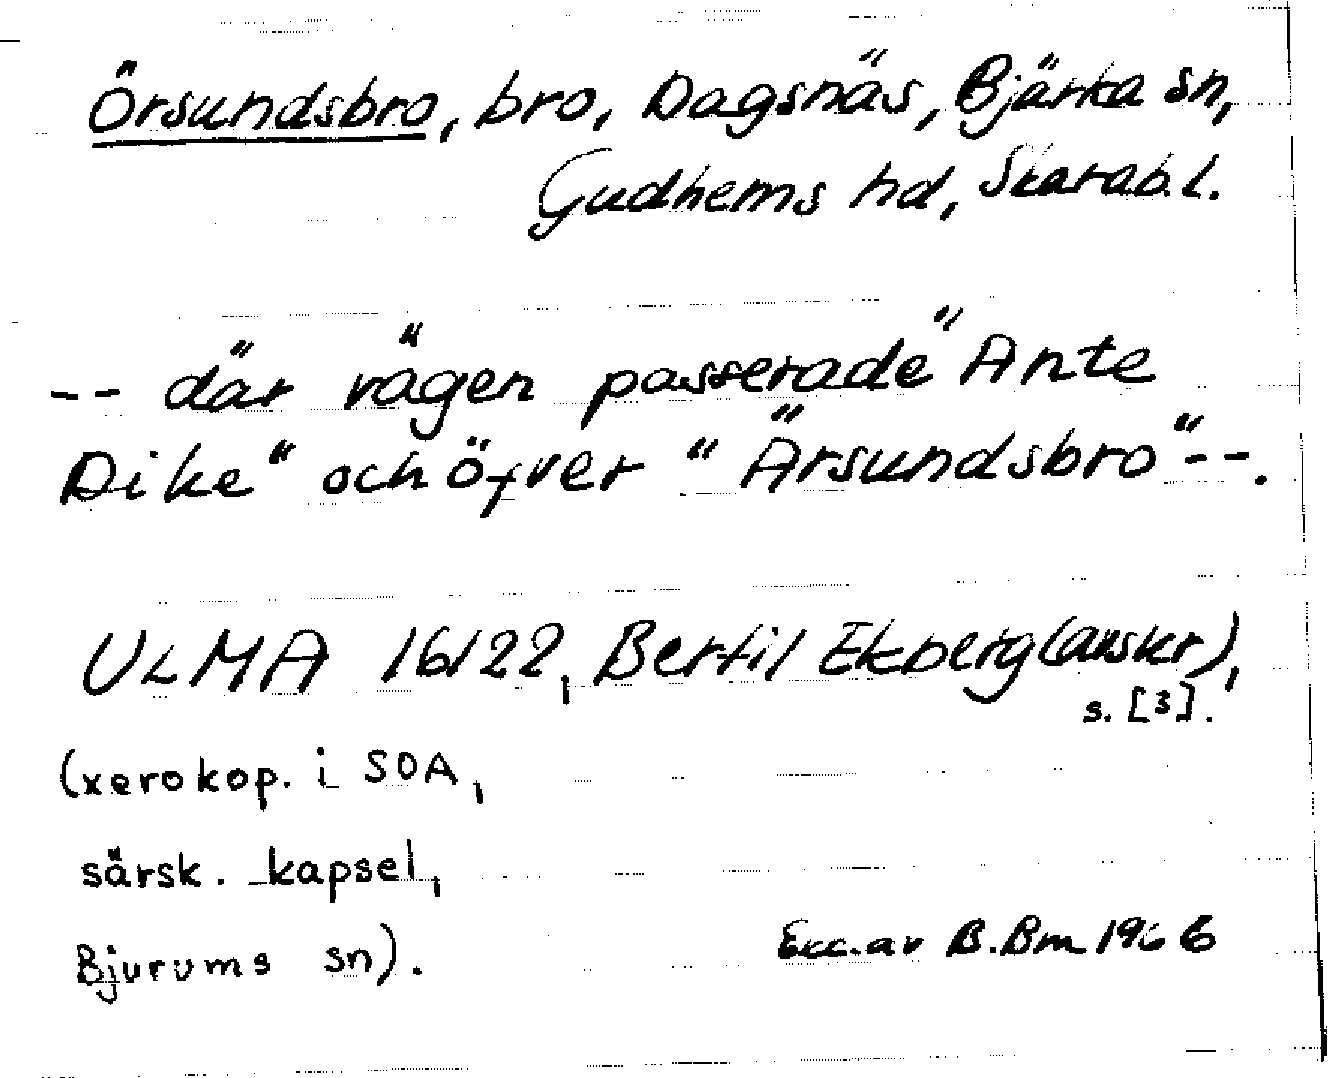 Örsundsbro, bro, Dagsnäs, Bjärka sn,
Gudhems hd, Skarab. l.
-- där vägen passerade "Ante
Dike" och öfver "Ärsundsbro"--.
ULMA 16122, Bertil Ekberg (avskr),
s. [3].
(xerokop. i SOA,
särsk. kapsel,
Bjurums sn).
Exc. av B. Bm 1966